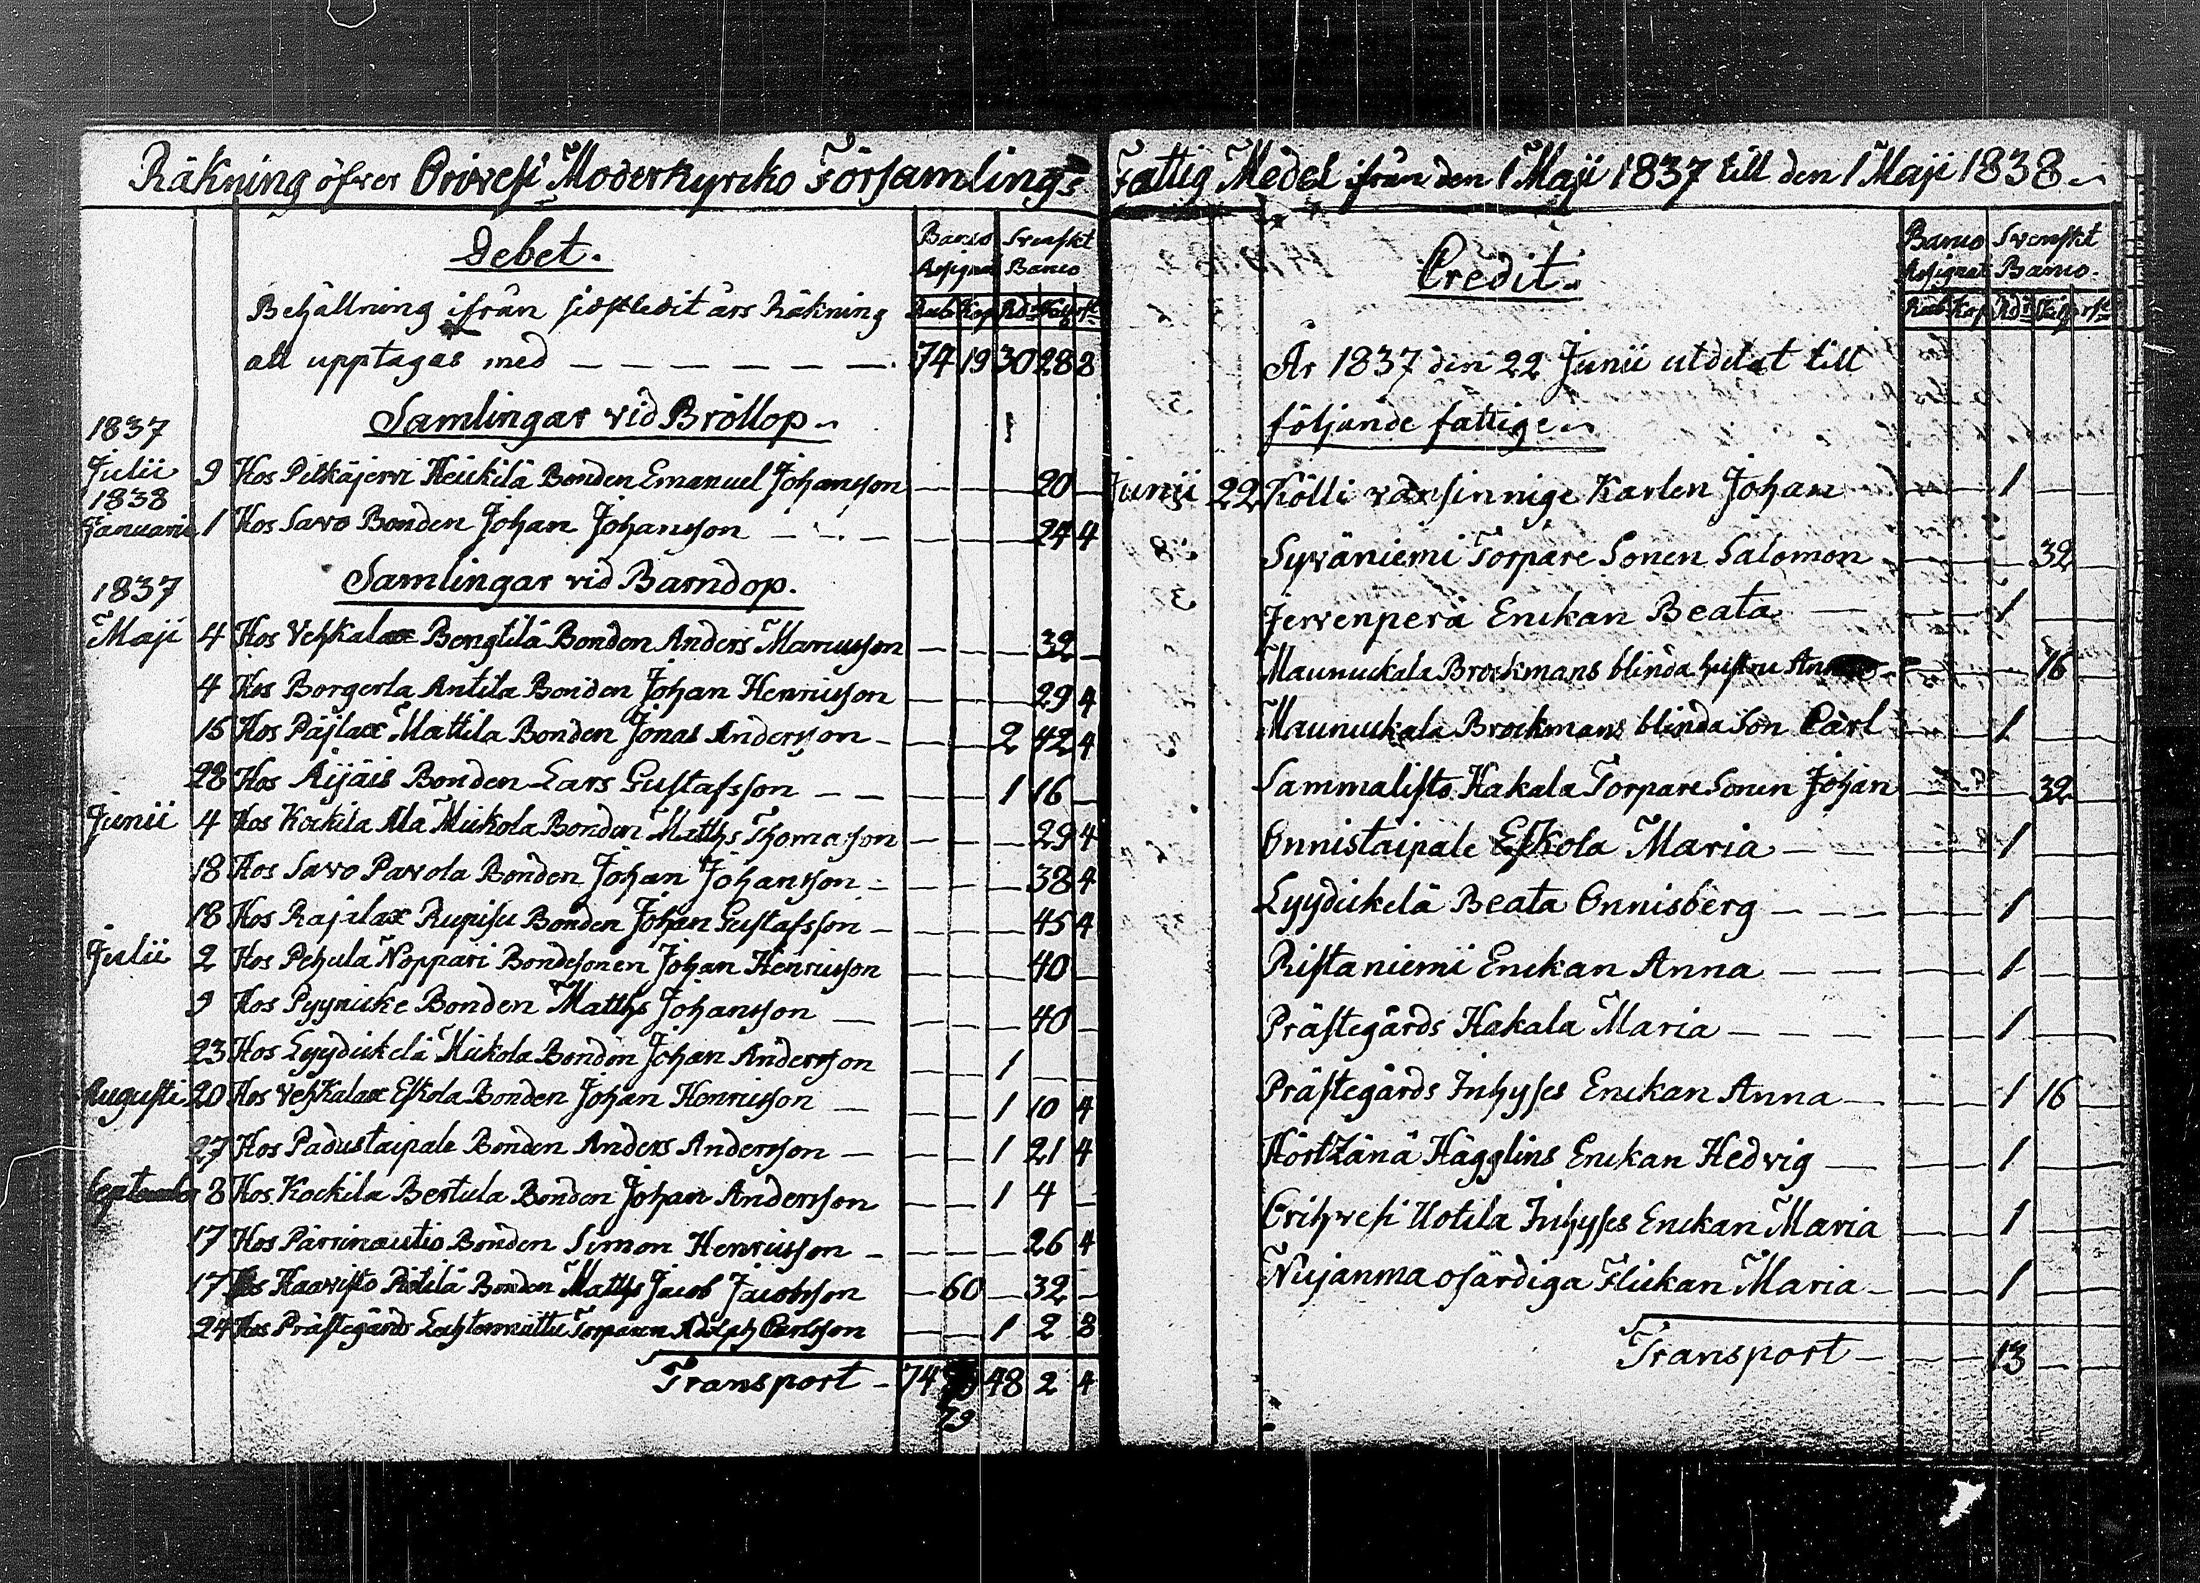 Räkning öfver Orivesi Moderkyrcko Församlings
Debet.
Banco Assignat Svenskt Banco
Rub Kop Rdr Skilg rst
Behållning ifrån sidstledit års Räkning
att upptagas med — — — — — — 74 19 30 28 8
Samlingar vid Bröllop.
1837
Julii 9 Hos Pitkäjervi Heickilä Bonden Emanuel Johansson — — — 20 —
1838
Januarii 1 Hos Savo Bonden Johan Johansson — — — — — 24 4
Samlingar vid Barndop.
1837
Maji 4 Hos Vehkalax Bengtilä Bonden Anders Maricusson — — — 32 —
4 Hos Borgerla Antila Bonden Johan Henricsson — — — 29 4
15 Hos Päjlax Mattila Bonden Jonas Andersson — — — 2 42 4
28 Hos Äijäis Bonden Lars Gustafsson — — — — 1 16 —
Junii 4 Hos Kockila Ala Mickola Bonden Matths Thomasson — — — 29 4
18 Hos Savo Pavola Bonden Johan Johansson — — — — 38 4
18 Hos Rajalax Rupisu Bonden Johan Gustafsson — — — — 45 4
Julii 2 Hos Pehula Noppari Bondesonen Johan Henricsson — — — 40 —
9 Hos Pyynicke Bonden Matths Johansson — — — — 40 —
23 Hos Lyydickelä Mickola Bonden Johan Andersson — — 1 — —
Augusti 20 Hos Vehkalax Eskola Bonden Johan Henricsson — — — 1 10 4
27 Hos Padustaipale Bonden Anders Andersson — — — 1 21 4
September 8 Hos Kockila Bertula Bonden Johan Andersson — — 1 4 —
17 Hos Pärrinautio Bonden Simon Henricsson — — — — 26 4
17 Hos Haavisto Pietilä Bonden Matths Jacob Jacobsson — 60 — 32 —
24 Hos Prästegårds Torparen Adolph Carlsson — — 1 2 8
Transport — 74 79 48 2 4
Fattig Medel ifrån den 1 Maji 1837 till den 1 Maji 1838
Credit.
Banco Assignat Svenskt Banco.
Rub Kop Rdr Skilg rst
År 1837 den 22 Junii utdelat till
följande fattige
Junii 22 Kölli vansinnige Karlen Johan — — 1 — —
Syväniemi Torpare Sonen Salomon — — — 32 —
Jervenperä Enckan Beata — — — 1 — —
Maunuckala Brockmans blinda hustru Anna — — — 16 —
Maunuckala Brockmans blinda Son Carl — — 1 — —
Sammalisto Hakala Torpare Sonen Johan — — — 32 —
Onnistaipale Eskola Maria — — — — 1 — —
Lyydickelä Beata Onnisberg — — — — — 1 — —
Ristaniemi Enckan Anna — — — — 1 — —
Prästegårds Hakala Maria — — — — — 1 — —
Prästegårds Inhyses Enckan Anna — — — 1 16 —
Hörtzänä Hägglins Enckan Hedvig — — — 1 — —
Orihvesi Uotila Inhyses Enckan Maria — — 1 — —
Nujanma ofärdiga Flickan Maria — — — 1 — —
Transport — — — 13 — —